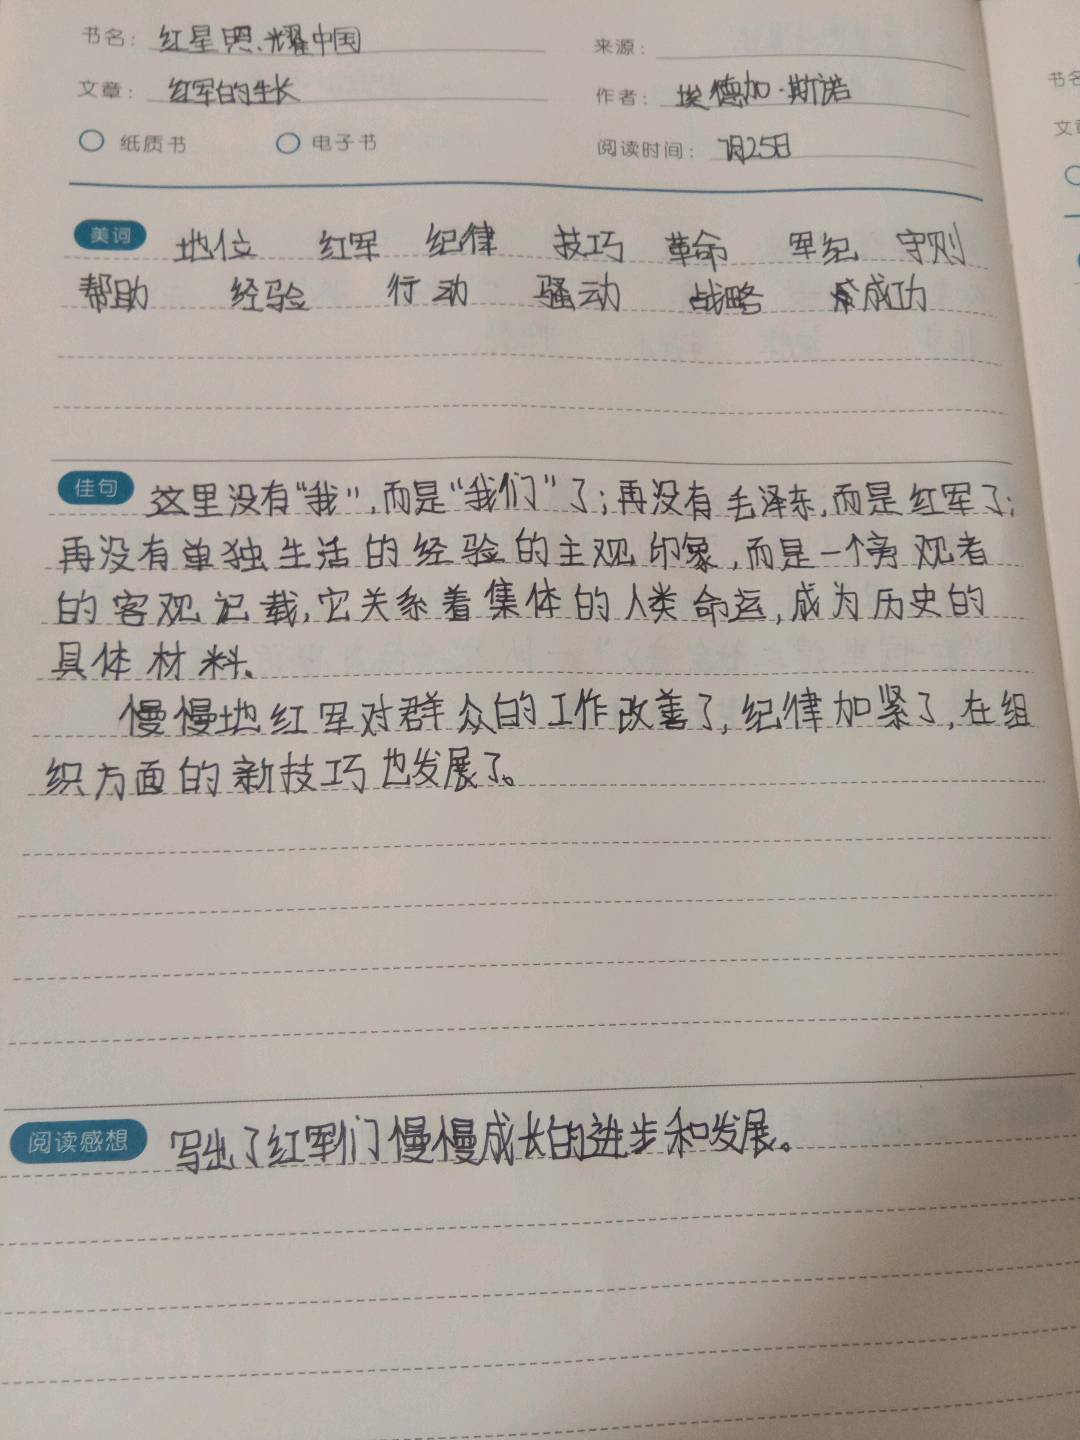 书名：红星照耀中国
来源：
文章：红军的生长
作者：埃德加·斯诺
纸质书 电子书
阅读时间：7月25日
美词 地位 红军 纪律 技巧 革命 军纪 守则
帮助 经验 行动 骚动 战略 成功
佳句 这里没有“我”，而是“我们”了；再没有毛泽东，而是红军了；
再没有单独生活的经验的主观印象，而是一个旁观者
的客观记载，它关系着集体的人类命运，成为历史的
具体材料。
慢慢地红军对群众的工作改善了，纪律加紧了，在组
织方面的新技巧也发展了。
阅读感想 写出了红军们慢慢成长的进步和发展。
书名
文章